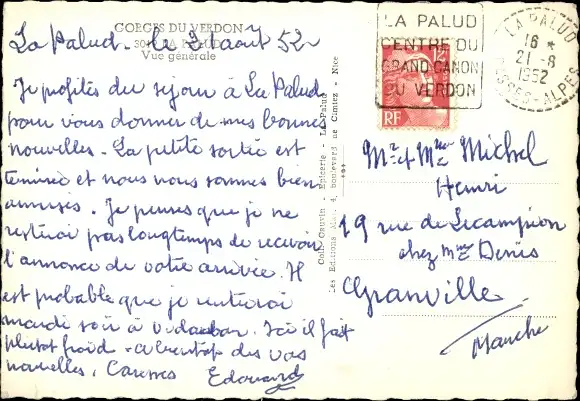 GORGES DU VERDON
LA PALUD
Vue générale
La Palud - le 21 août 52
Je profites du sejour à La Palud
pour vous donner de mes bonnes
nouvelles. La petite sortie est
terminée et nous nous sommes bien
amusés. Je penses que je ne
resterai pas longtemps de recevoir
l'annonce de votre arrivée. Il
est probable que je rentrerai
mardi soir à Ici il fait
plutot froid - a bientot des vos
nouvelles, Caresses Edouard
Coll. Cauvin - Epicerie - La Palud
Les Editions boulevard de Cimiez - Nice
LA PALUD
CENTRE DU
GRAND CANON
DU VERDON
RF
LA PALUD
16 *
21-8
1952
BASSES-ALPES
Mr et Mme Michel
Henri
19 rue de Lecampion
chez Mme Denis
Granville
Manche